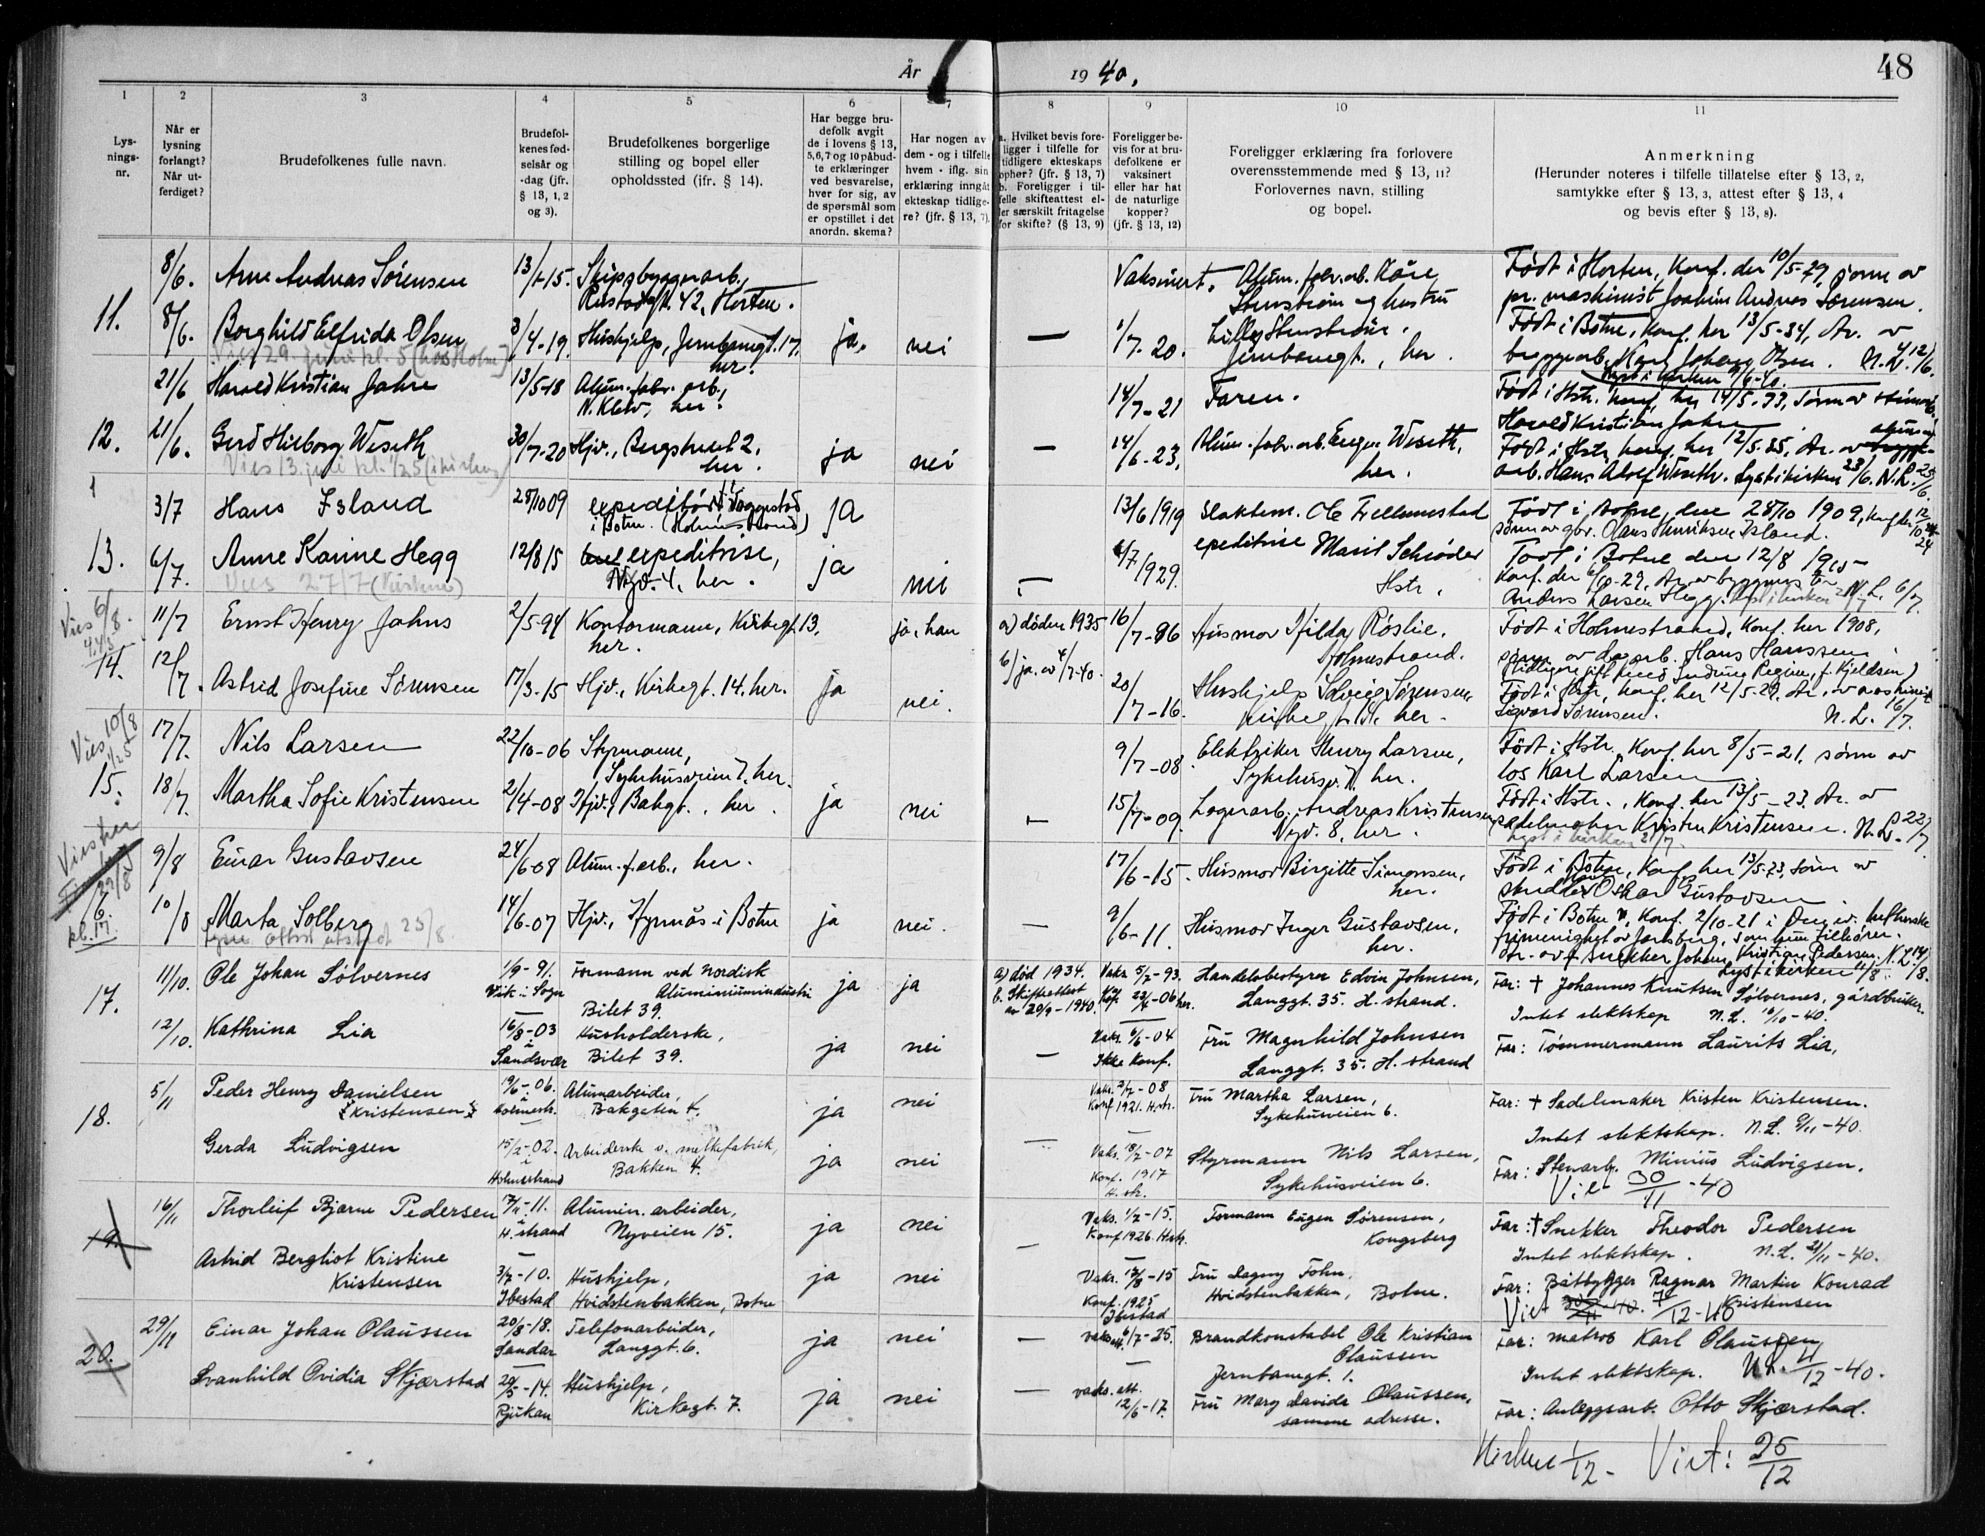 År 1940.
48
1 2 3 4 5 6 7 8 9 10 11
Lys-
nings-
nr.
Når er
lysning
forlangt?
Når ut-
ferdiget?
Brudefolkenes fulle navn.
Brudefol-
kenes fød-
selsår og
-dag (jfr.
§ 13, 1, 2
og 3).
Brudefolkenes borgerlige
stilling og bopel eller
opholdssted (jfr. § 14).
Har begge bru-
defolk avgit
de i lovens § 13,
5, 6, 7 og 10 påbud-
te erklæringer
ved besvarelse,
hver for sig, av
de spørsmål som
er opstillet i det
anordn. skema?
Har nogen av
dem - og i tilfelle
hvem - iflg. sin
erklæring inngåt
ekteskap tidlige-
re? (jfr. § 13, 7).
a. Hvilket bevis fore-
ligger i tilfelle for
tidligere ekteskaps
ophør? (jfr. § 13, 7)
b. Foreligger i til-
felle skifteattest el-
ler særskilt fritagelse
for skifte? (§ 13, 9)
Foreligger be-
vis for at bru-
defolkene er
vaksinert
eller har hat
de naturlige
kopper?
(jfr. § 13, 12)
Foreligger erklæring fra forlovere
overensstemmende med § 13, 11?
Forlovernes navn, stilling
og bopel.
Anmerkning
(Herunder noteres i tilfelle tillatelse efter § 13, 2,
samtykke efter § 13, 3, attest efter § 13, 4
og bevis efter § 13, 8).
11.
8/6. Arne Andreas Sørensen 13/1-15. Skipsbyggerarb.
42, Horten.
Vaksinert. Alum. fabr. arb. Kåre
Stenstrøm og hustru
Født i Horten, Konf. der 10/5-29, sønn av
pr. maskinist Joakim Andreas Sørensen.
8/6. Borghild Elfrida Olsen 3/4-19. Hushjelp, Jernbanegt. 17,
her.
ja. nei — 1/7-20. Lilly Stenstrøm,
Jernbanegt., her.
Født i Botne, Konf. her 13/5-34, dtr. av
byggearb. Karl Johan Olsen. N.L. 12/6.
Vies 29. juni kl. 5
12.
21/6 Harald Kristian Jahre 13/5-18 Alum. fabr. arb.,
N. Klev, her.
14/7-21 Faren.
Født i Hstr. konf. her 14/5-33, sønn av
Harald Kristian Jahre
21/6. Gerd Hilborg Weseth 30/7-20 Hjv., Bergstuet 2,
her.
ja nei — 14/6-23. Alum. fabr. arb. Eugen Weseth,
her.
Født i Hstr. konf. her 12/5-35, dtr. av
arb. Hans Adolf Weseth. Lyst i kirken 23/6. N.L. 25/6.
Vies 13. juli kl. 1/25 (i kirken)
13.
3/7 Hans Island 28/10 09 expeditør,
i Botne.
ja 13/6 1919 Slakterm. Ole Frellumstad
Født i Botne, den 28/10 1909, konf. her
sønn av gbr. Hans Henriksen Island.
6/7. Anne Karine Hegg 12/8 15 expeditrise,
Nyv. 4, her.
ja nei — 4/7 1929. expeditrise Marit Schrøder
Hstr.
Født i Botne den 12/8 1915
Konf. der 6/10-29. Dtr. av byggmester
Anders Larsen Hegg. N.L. 6/7.
Vies 27/7 (kirken)
Vies 6/8.
14.
11/7 Ernst Henry Johns 2/5-94 Kontormann, Kirkegt. 13,
her.
ja, han a) døden 1935 16/7-96 Husmor Hilda Røslie,
Holmestrand.
Født i Holmestrand, Konf. her 1908,
sønn av dagarb. Hans Hanssen
(tidligere gift med Gudrun Regine, f. Kjeldsen)
12/7. Astrid Josefine Sørensen 17/3-15 Hjv., Kirkegt. 14, her.
ja nei. b) ja, av 4/7-40. 20/7-16. Hushjelp Solveig Sørensen,
Kirkegt. 14, her.
Født i Hstr, konf. her 12/5-29. dtr. av maskinist
Sigvard Sørensen. N.L. 16/7.
Vies 10/8
1/25
15.
17/7. Nils Larsen 22/10-06 Styrmann,
Sykehusveien 7, her.
9/7-08. Elektriker Henry Larsen,
Sykehusv. 7, her.
Født i Hstr. Konf. her 8/5-21, sønn av
los Karl Larsen
18/7. Martha Sofie Kristensen 2/4-08 Hjv., Bakgt., her.
ja nei — 15/7-09. Lagerarb. Andreas Kristensen,
Nyv. 8, her.
Født i Hstr., Konf. her 13/5-23. dtr. av
sadelmaker Kristen Kristensen. N.L. 22/7.
Lyst i kirken 21/7.
Vies her
29/8
16.
kl. 17.
9/8 Einar Gustavsen 24/6-08 Alum.f.arb., her.
17/6-15. Husmor Birgitte Simonsen,
her.
Født i Botne, Konf. her 13/5-23, sønn av
Oskar Gustavsen.
10/8 Marta Solberg 14/6-07 Hjv., Hyrnås i Botne
ja nei. — 9/6-11. Husmor Inger Gustavsen,
her.
Født i Botne, Konf. 2/10-21 i Den ev. lutherske
frimenighet av Jarlsberg, som hun tilhører.
dtr. av f. snekker Johan Kristian Pedersen. N.L. 14/8.
Lyst i kirken 11/8.
17.
11/10. Ole Johan Sølvernes 1/9-91. Formann ved Nordisk
Vik i Sogn Aluminiumindustri
Bilet 39.
ja ja a) død 1934.
b. Skifteattest
av 20/9-1940.
Vaks. 5/7-93. Handelsbestyrer Edvin Johnsen,
Langgt. 35. H.strand.
Far: † Johannes Knutsen Sølvernes, gårdbruker.
Intet slektskap N.L. 16/10-40.
12/10. Kathrina Lia 16/8-03 Husholderske,
i Sandsvær Bilet 39.
ja nei — Vaks. 6/6-04
Ikke konf.
Fru Magnhild Johnsen
Langgt. 35. H.strand
Far: Tømmermann Laurits Lia,
18.
5/11 Peder Henry Danielsen
Kristensen
19/6-06. Alumarbeider,
i Holmestr. Bakgaten 4.
ja nei Vaks. 2/7-08
Konf 1921. H.str.
Fru Martha Larsen,
Sykehusveien 6.
Far: † Sadelmaker Kristen Kristensen.
Intet slektskap. N.L. 6/11-40.
Gerda Ludvigsen 15/2-02. Arbeiderske v. melkefabrik,
i Holmestrand Bakken 4.
ja nei — Vaks. 18/7-07
Konf. 1917
H.str.
Styrmann Nils Larsen,
Sykehusveien 6.
Far: Stenarb. Minius Ludvigsen.
Viet 30/11-40
19.
16/11 Thorleif Bjarne Pedersen 7/11-11. Alumin. arbeider,
i H.strand Nyveien 15.
ja nei — Vaks. 1/7-15.
Konf 1926. H.str.
Formann Eugen Sørensen,
Kongsberg
Far: † Snekker Theodor Pedersen
Intet slektskap. N.L. 21/11-40.
Astrid Bergliot Kristine
Kristensen
3/7-10. Hushjelp,
Ibestad Hvidstenbakken, Botne
ja nei Vaks. 13/8-15
Konf. 1925
Ibestad
Fru Dagny Føhn,
Hvidstenbakken, Botne.
Far: Båtbygger Ragnar Martin Konrad
Kristensen
Viet 7/12-40
20.
29/11 Einar Johan Olaussen 20/8-18. Telefonarbeider,
Sandar Langgt. 6.
ja nei — vaks. att. 6/7-25. Brandkonstabel Ole Kristian
Olaussen
Jernbanegt. 1.
Far: matros Karl Olaussen
Intet slektskap. N.L. 4/12-40.
Svanhild Ovidia Skjærstad 20/5-14. Hushjelp,
Rjukan Kirkegt. 7.
ja nei — vaks. att.
12/6-17.
Fru Mary Davida Olaussen,
samme adresse.
Far: Anleggsarb. Otto Skjærstad.
Kirken 1/12 - Viet: 25/12